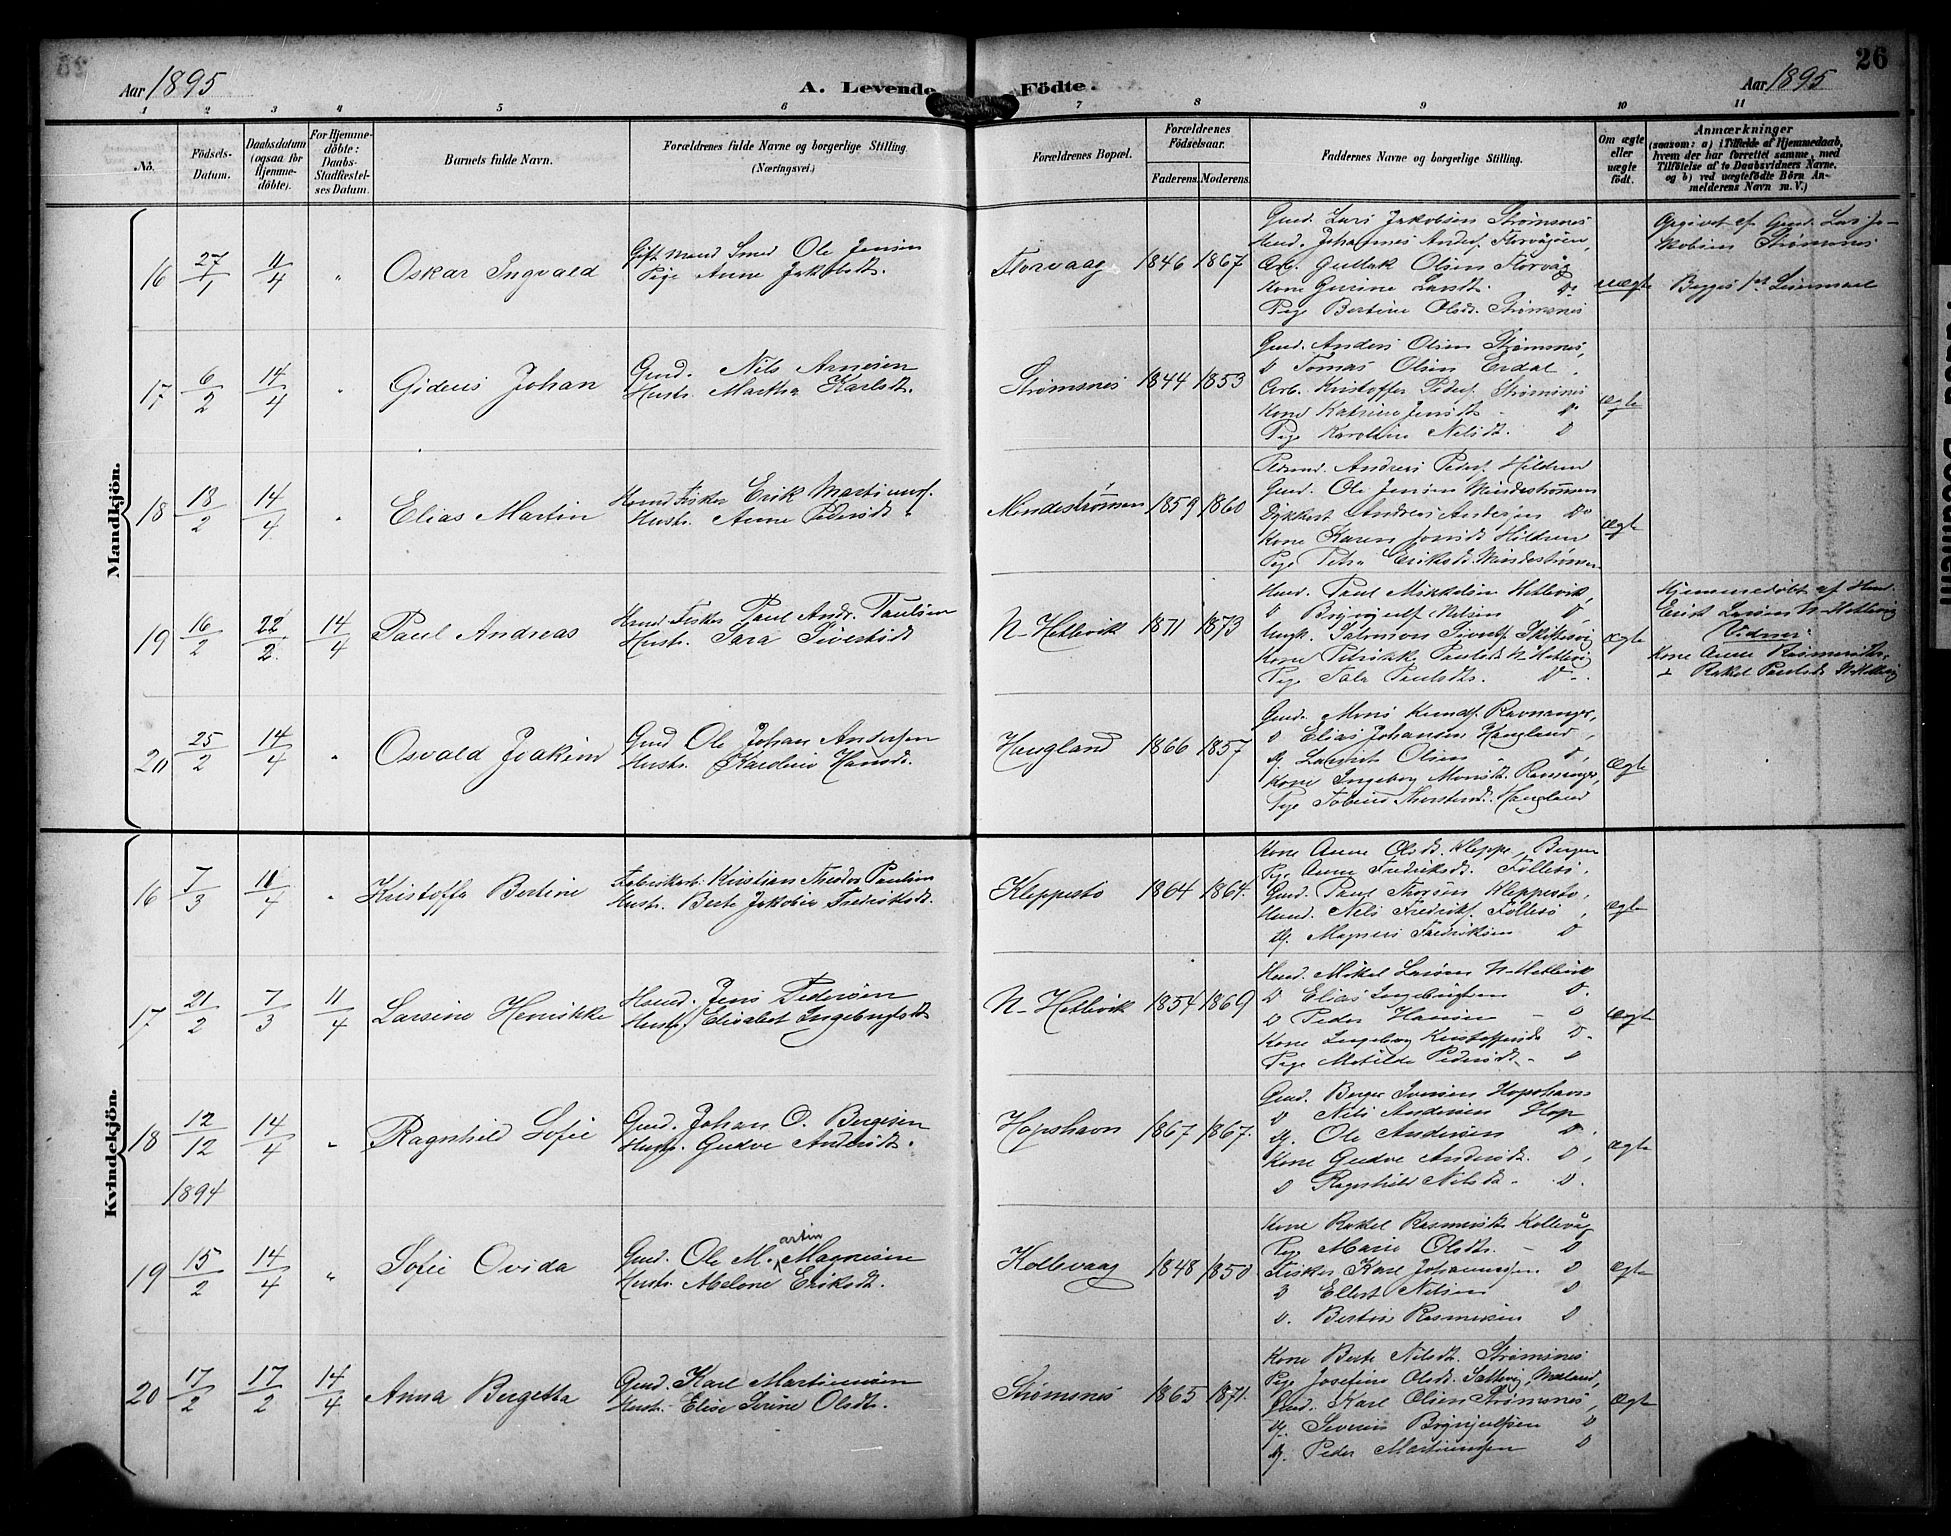 Aar 1895
A. Levende Födte.
Aar 1895
26
1 2 3 4 5 6 7 8 9 10 11
No.
Födsels-Datum.
Daabsdatum (ogsaa for Hjemme-döbte).
For Hjemme-döbte: Daabs-Stadfæstel-ses Datum.
Barnets fulde Navn.
Forældrenes fulde Navne og borgerlige Stilling.
(Næringsvei.)
Forældrenes Bopæl.
Forældrenes Födselsaar.
Faderens. Moderens.
Faddernes Navne og borgerlige Stilling.
Om ægte eller uægte födt.
Anmærkninger
(saasom: a) i Tilfælde af Hjemmedaab, hvem der har forrettet samme, med Tilföielse af to Daabsvidners Navne, og b) ved uægtefödte Börn An-melderens Navn m. V.)
Mandkjön.
16 27/1 11/4 " Oskar Ingvald
Gift Mand Smed Ole Jensen
Pige Anne Jakobsdt.
Florvaag 1846 1867
Gmd. Lars Jakobsen Strømsnes
Hmd. Johannes Anders. Florvågøen,
Arb. Gullak Olsen Florvåg
Kone Gurine Larsdt. Do
Pige Bertine Olsd. Strømsnes
uægte
Opgivet af Gmd. Lars Ja-
kobsen Strømsnes
Begges 1st Leiermaal
17 6/2 14/4 " Gideus Johan
Gmd. Nils Arnesen
Hustr. Martha Karlsdt.
Strømsnes 1844 1853
Gmd. Anders Olsen Strømsnes,
D Tomas Olsen Erdal,
Arb. Kristoffer Peders. Strømsnes
Kone Katrine Jensdt. Do
Pige Karoline Nilsdt. D
ægte
18 13/2 14/4 " Elias Martin
Hmd Fisker Erik Martinus.
Hustr. Anne Pedersdt.
Mindestrømmen 1859 1860
Andreas Peders. Hildren
Gmd. Ole Jensen Mindestrømmen
Andreas Andersen Do
Kone Karen Jonsd. Hildren
Pige Petra Eriksd. Mindestrømmen
ægte
19 16/2 22/2 14/4 Paul Andreas
Hmd Fisker Paul Andr. Paulsen
Hustr. Sara Siversdt
N-Hetlevik 1871 1873
Hmd. Paul Mikkelsen Hetlevik,
D Brynjulf Nilsen D,
Ungk. Salomon Siverts. Skittesvig
Kone Petrikke Paulsd. N-Hetlevig
Pige Talz Paulsdt. D
ægte
Hjemmedøbt af Hmd.
Erik Larsen N-Hetlevig
Vidner:
Kone Anne Rasmusdtr.
Rakel Paulsd. N-Hetlevig
20 25/2 14/4 " Osvald Joakim
Gmd Ole Johan Andersen
Hustr. Karoline Hansd.
Haugland 1866 1857
Gmd. Mons Knuds. Ravnanger,
D Elias Johansen Haugland,
Olsen D,
Kone Ingeborg Monsdt. Ravnanger,
Pige Tobine Thorstensd. Haugland
ægte
Kvindekjön.
16 7/3 11/4 " Kristoffa Bertine
Fabrikarb. Kristian Theodor Paulsen
Hustr. Berte Jakobine Fredriksdt.
Kleppestø 1864 1864.
Kone Anne Olsd. Kleppe, Bergen
Pige Anne Fredriksdt. Follesø,
Gmd. Paul Thorsen Kleppestø,
Hmd. Nils Fredriks. Follesø,
Uk. Magnus Fredriksen D
ægte
17 21/2 7/3 11/4 Larsine Henrikke
Hmd. Jens Pedersen
Hustr. Elisabet Ingebrigtsdt
N-Hetlevik 1854 1869
Hmd. Mikal Larsen N-Hetlevik
D Elias Ingebrigtsen D.
D Peder Hansen - D
Kone Ingeborg Kristoffersd. D.
Pige Matilde Pedersdt. - D
ægte
18 12/12 1894 14/4 " Ragnhild Sofie
Gmd. Johan O. Bergesen
Hustr. Gudve Andersdt.
Hopshavn 1867 1867.
Gmd. Berger Iversen Hopshavn
D Nils Andersen Hop
Uk. Ole Andersen D.
Kone Gudve Andersdt. D,
D Ragnhild Nilsdt. D.
ægte
19 15/2 14/4 " Sofie Ovida
Gmd. Ole Martin Magnesen
Hustr. Malene Eriksdt.
Kollevaag 1848 1850
Kone Rakel Rasmusdt. Kollevåg
Pige Marie Olsdt. - D
Fisker Karl Johannessen D
D Ellert Nilsen D
D. Bertin Rasmusen D
ægte
20 17/2 17/2 14/4 Anna Bergetta
Gmd. Karl Martinusen
Hustr. Elise Serine Olsdt.
Strømsnes 1865 1871.
Kone Berte Nilsdt. Strømsnes
Pige Josefine Olsd.
Gmd. Karl Olsen Strømsnes,
Uk. Severin Brynjulfsen D
Uk. Peder Martinussen D
ægte